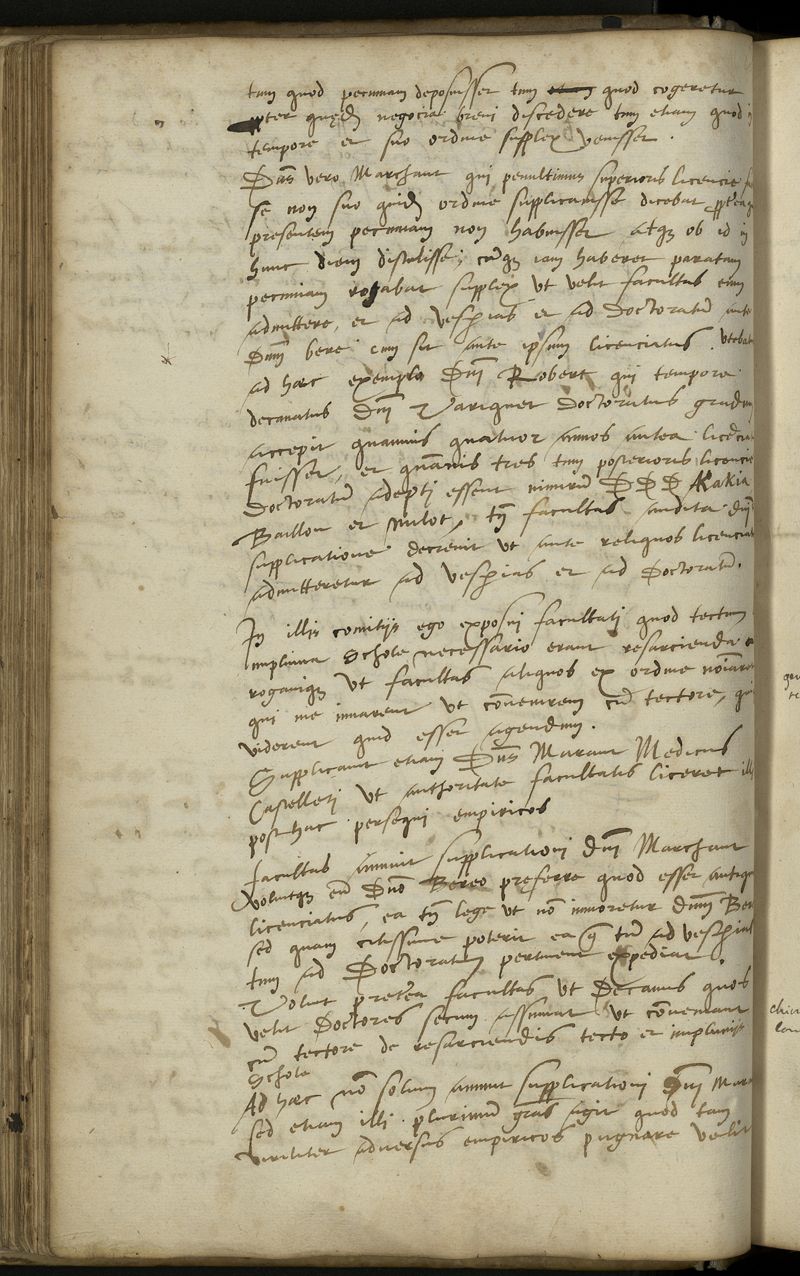 tum quod pecuniam deposuisset tum etiam quod cogeretur
ppter quędā negocia brevi discedere tum etiam quod
tempore et suo ordine supplex venisset.
Dns vero Marchant qui penultimus superioris licencie
se non suo quidē ordine supplicavisse dicebat
presentem pecuniam non habuisset atq ob id in
hunc diem distulisse, cumq iam haberet paratam
pecuniam rogabat supplex ut velit facultas eum
admittere, et ad vesperias et ad doctoratū ante
Dnm bere cum sit ante ipsum licenciatus. utebat
ad haec exemplo Dni Robert qui tempore
decanatus Dni Varignet doctoratus gradum
accepit quamvis quatuor annos antea
fuisset, et quāvis tres tum posterioris licencie
doctoratū adepti essent nimirum D D D Akakia
Baillon et milot, tū facultas audita dni
supplicatione decrevit ut ante reliquos
admitteretur ad vesperias et ad Doctoratū.
In illis comitijs ego exposui facultati quod tectum
impluvia Schole necessario erant resarcienda
rogaviq ut facultas aliquos ex ordine
qui me iuvarent ut cōvenirem cū tectore,
viderent quid esset agendum.
Supplicavit etiam Dns Marant Medicus
Castelleti ut authoritate facultatis liceret illi
posthac persequi empiricos
facultas annuit supplicationi dni Marchant
voluitq eū Dno Bereo pręferre quod esset
licenciatus, ea tū lege ut nō moretur dnum Ber
sed quam citissime poterit ea q tū ad vesperias
tum ad Doctoratum pertinent expediat.
Voluit pretea facultas ut Decanus quos
velit Doctores secum assumat ut cōveniant
cū tectore de resarciendis tecto et impluvijs
Schole
Ad haec nō solum annuit supplicationi Dni Mar
sed etiam illi plurimū gras agit quod tam
viriliter adversus empiricos pugnare velit